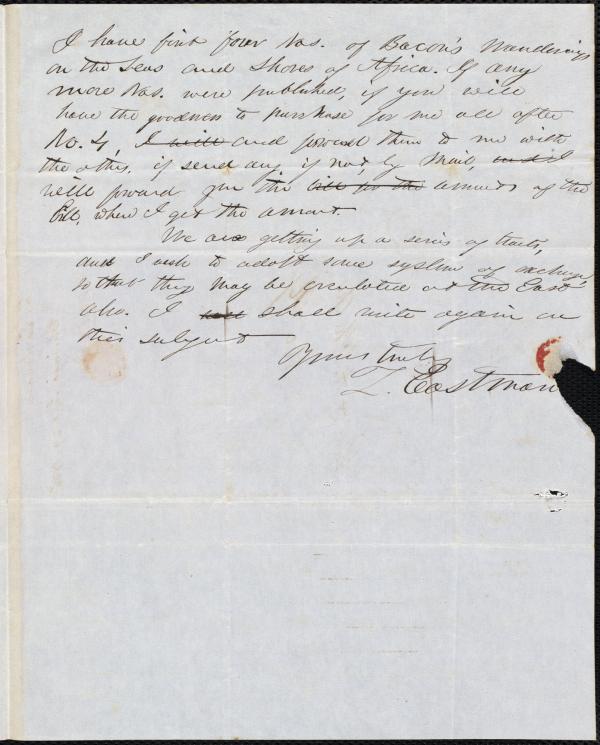 I have first four Nos. of Bacon's Wanderings
on the Seas and Shores of Africa. If any
more Nos. were published, if you will
have the goodness to purchase for me all after
No. 4, I will and forward them to me with
the others, if send any, if not, by Mail, and I
will forward you the bill for the amount of the
Bill, when I get the amount.
We are getting up a series of tracts,
and I wish to adopt some system of exchange,
so that they may be circulated at the East
also. I shall write again on
this subject
Yours truly
Z. Eastman